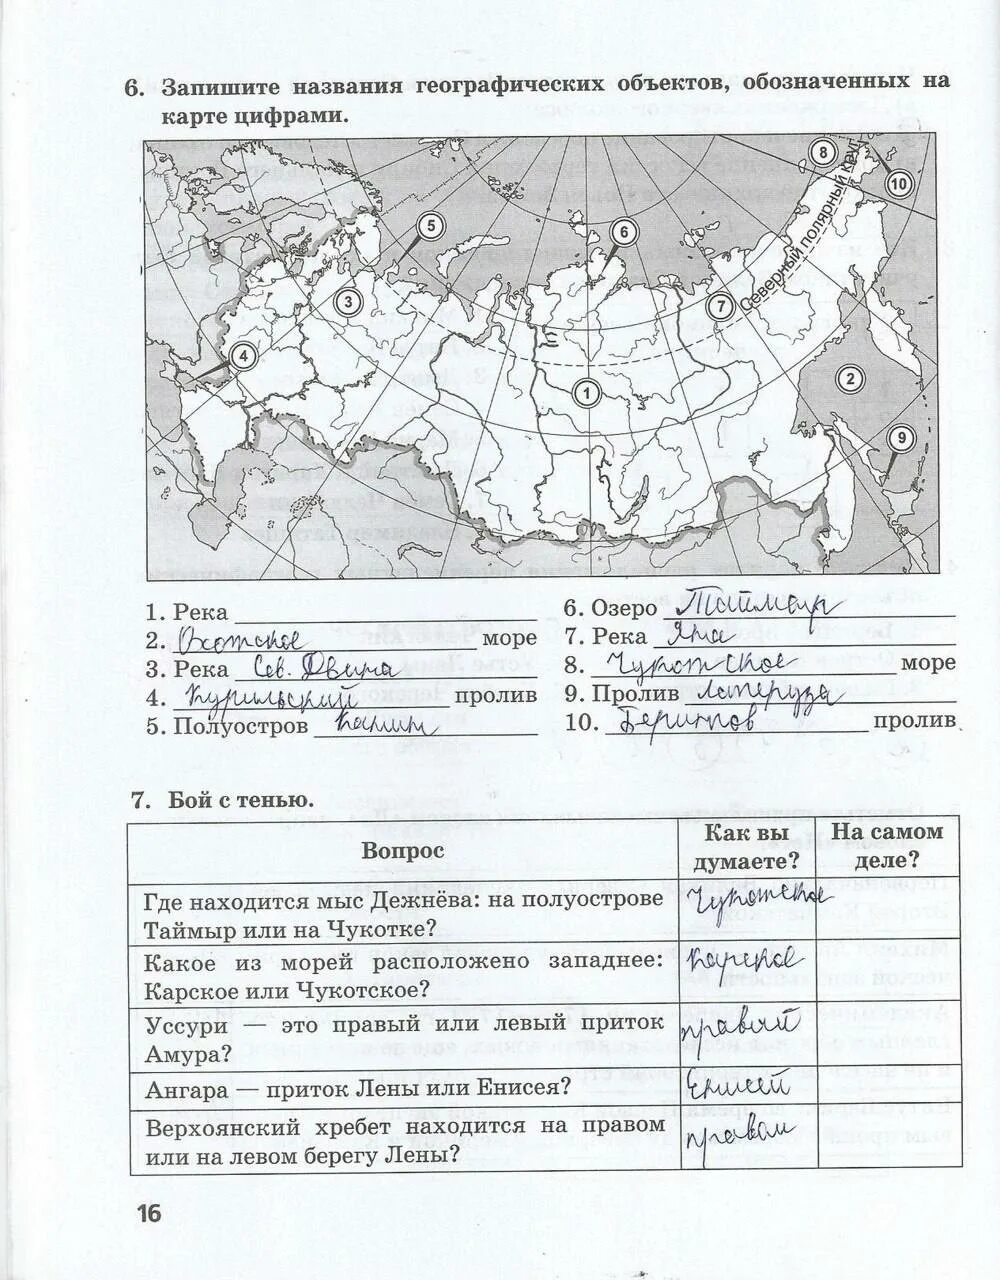 6. Запишите названия географических объектов, обозначенных на
карте цифрами.
8
10
5
6
Северный полярный круг
3
7
4
2
1
9
1. Река
2. Охотское море
3. Река Сев. Двина
4. Курильский пролив
5. Полуостров Канин
6. Озеро Таймыр
7. Река Яна
8. Чукотское море
9. Пролив Лаперуза
10. Берингов пролив
7. Бой с тенью.
Вопрос
Как вы
думаете?
На самом
деле?
Где находится мыс Дежнёва: на полуострове
Таймыр или на Чукотке?
Чукотское
Какое из морей расположено западнее:
Карское или Чукотское?
Карское
Уссури — это правый или левый приток
Амура?
правый
Ангара — приток Лены или Енисея?
Енисей
Верхоянский хребет находится на правом
или на левом берегу Лены?
правом
16